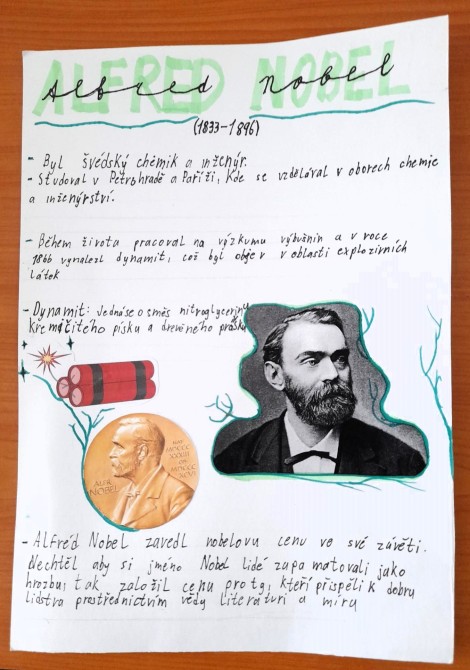 ALFRED NOBEL
Alfred Nobel
(1833-1896)
- Byl švédský chemik a inženýr.
- Studoval v Petrohradě a Paříži, kde se vzdělával v oborech chemie
a inženýrství.
- Během života pracoval na výzkumu výbušnin a v roce
1866 vynalezl dynamit, což byl objev v oblasti explozivních
látek
- Dynamit: Jedná se o směs nitroglycerinu
křemičitého písku a dřevěného prášku
ALFR.
NOBEL
NAT.
MDCCC
XXXIII
OB.
MDCCC
XCVI
- Alfréd Nobel zavedl nobelovu cenu ve své závěti.
Nechtěl aby si jméno Nobel lidé zapamatovali jako
hrozbu, tak založil cenu pro ty, kteří přispěli k dobru
lidstva prostřednictvím vědy literatuří a míru